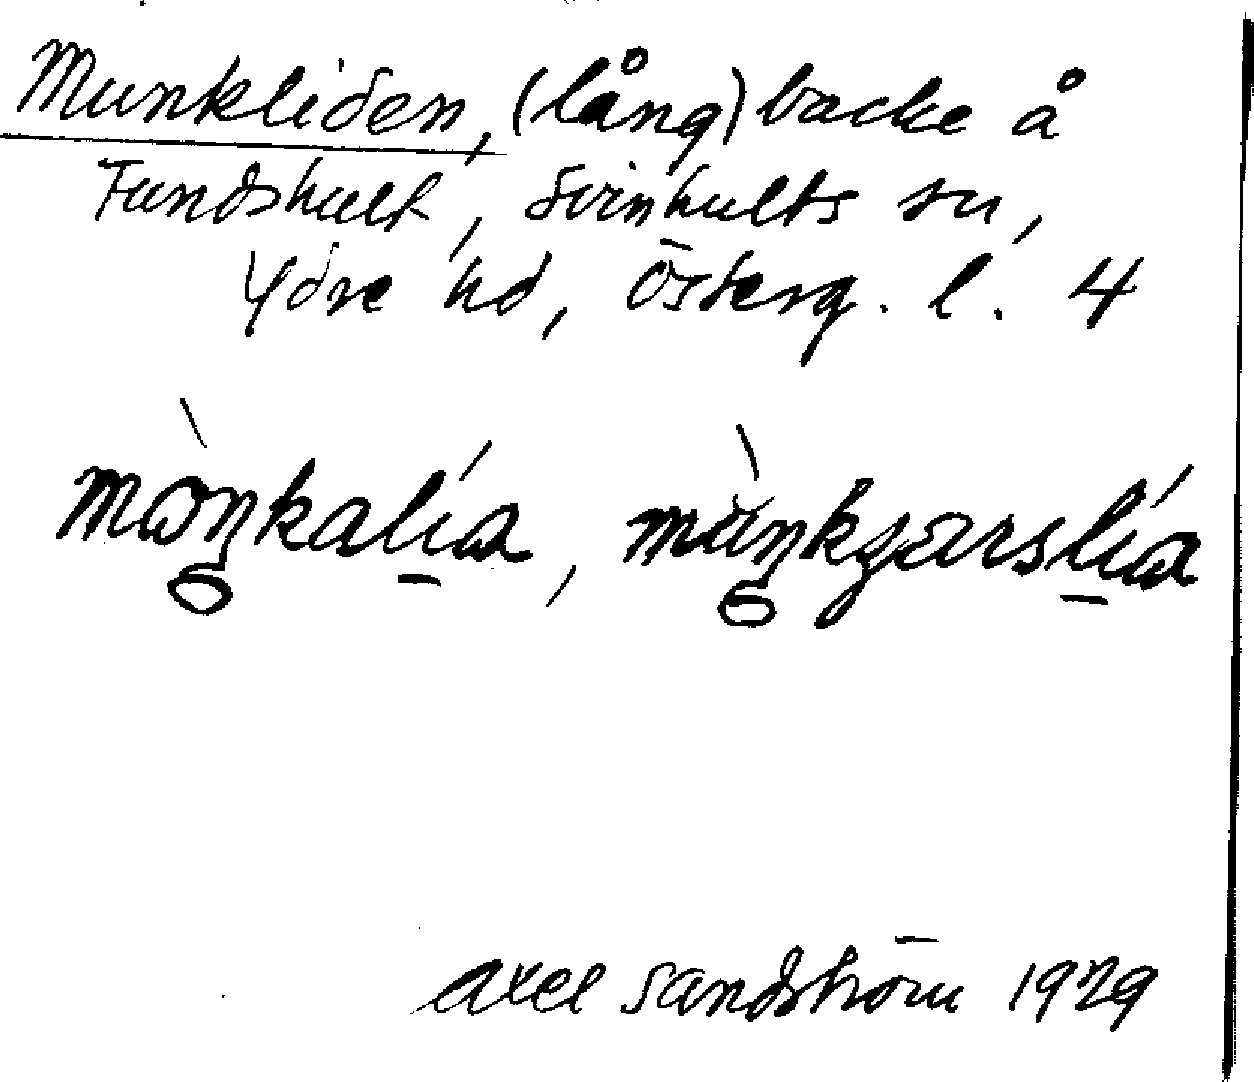 Munkliden, (lång) backe å
Fundshult, Svinhults sn,
Ydre hd, Österg. l. 4
mo̱ŋkalía, mùŋkgarslía
Axel Sandström 1929